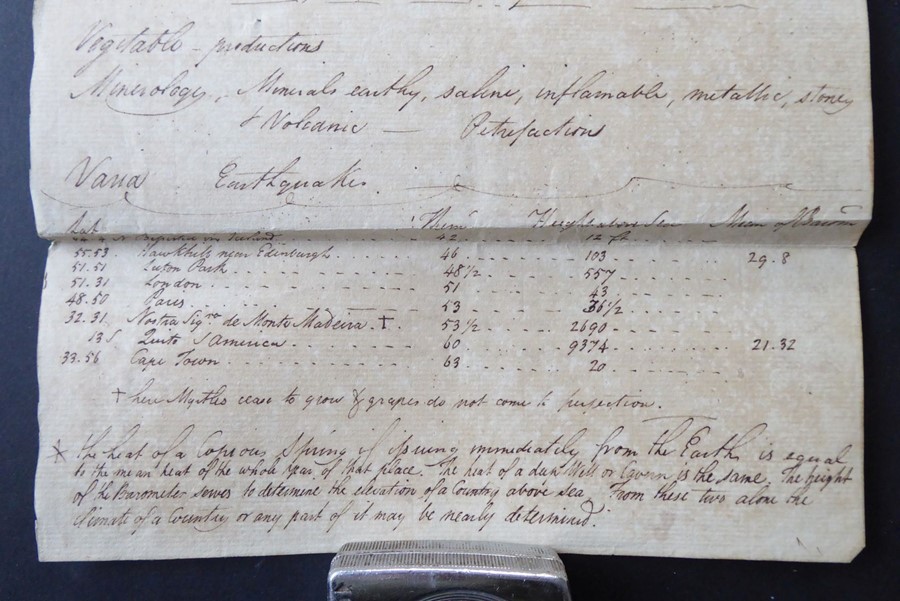 Vegitable - productions
Minerology, Minerals earthy, saline, inflamable, metallic, stoney
& Volcanic — Petrefactions
Varia Earthquakes.
Lat Therm Height above Sea Mean of Barom
in Iceland 42 12 ft
55.53. Hawkhill near Edinburgh 46 103 29.8
51.51 Luton Park 48½ 557
51.31 London 51 43
48.50 Paris 53 36½
32.31. Nostra Sigra de Monte Madeira. † 53½ 2690
13 S Quito S America 60 9374 21.32
33.56 Cape Town 63 20
† here Myrtles cease to grow & grapes do not come to perfection.
* the heat of a Copious Spring if issuing immediately from the Earth is equal
to the mean heat of the whole year of that place. The heat of a deep Well or Cavern is the same. The height
of the Barometer serves to determine the elevation of a Country above sea. From these two alone the
Climate of a Country or any part of it may be nearly determined.